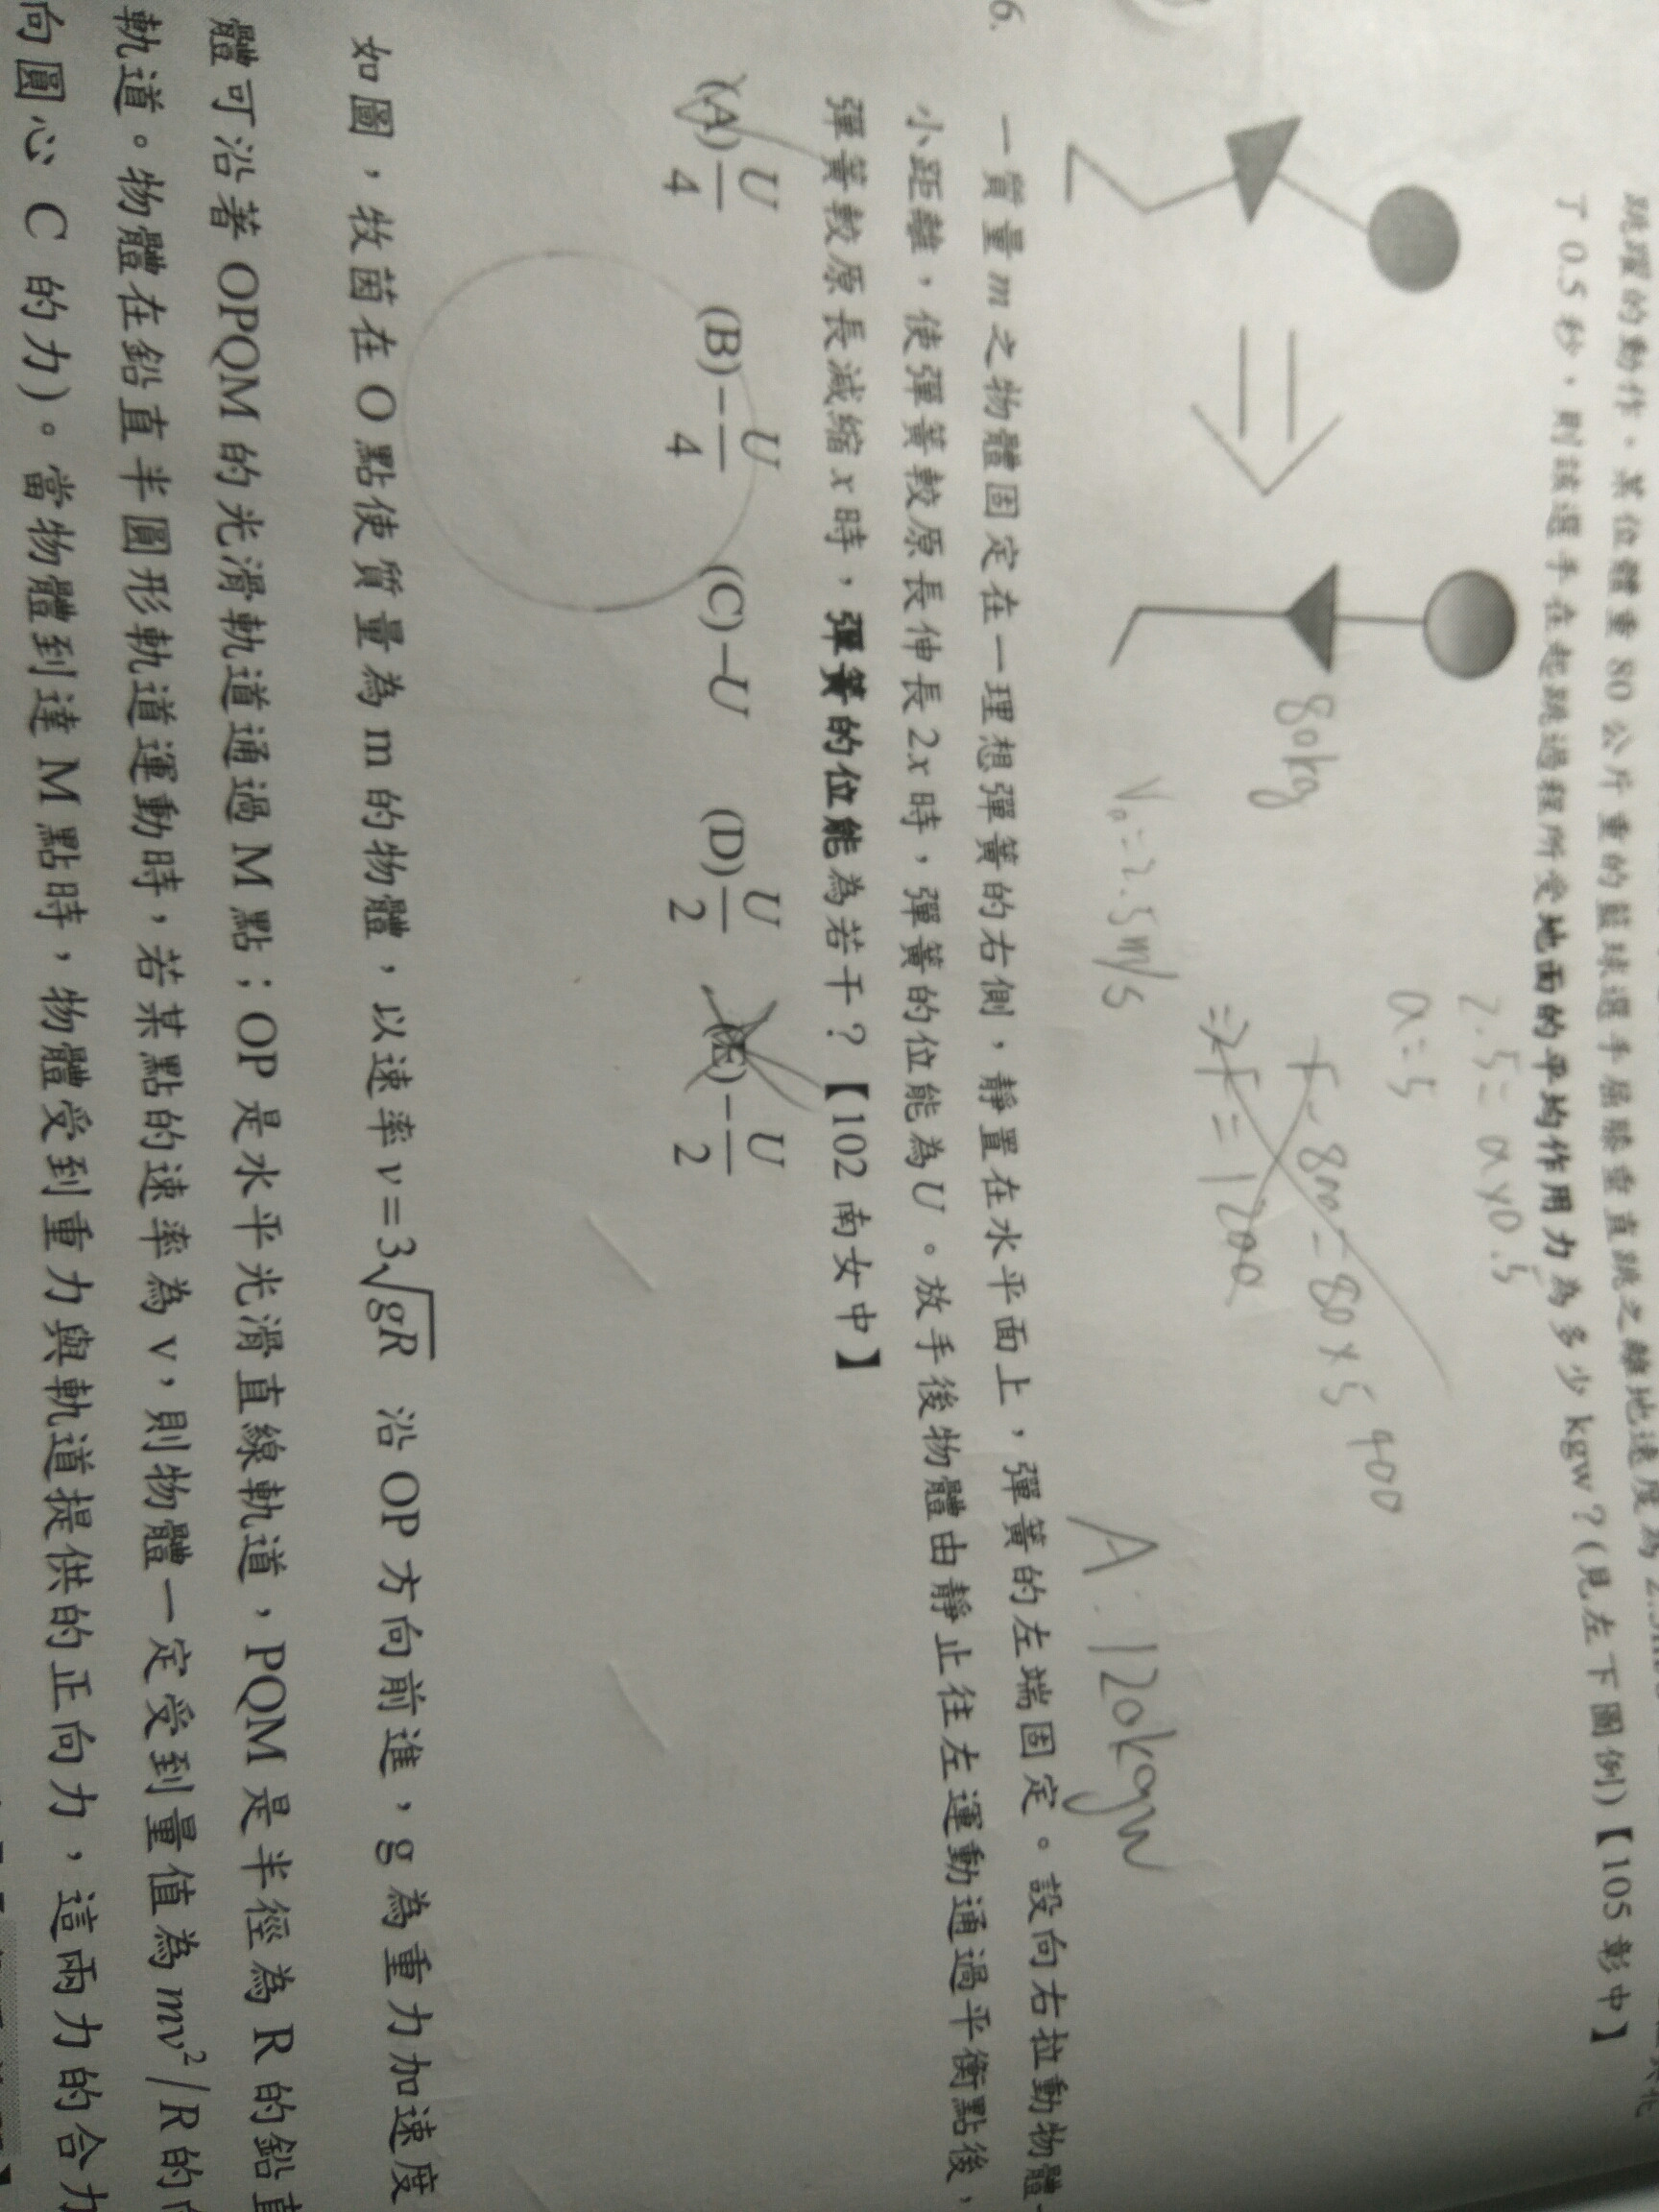 跳躍的動作。某位體重 80 公斤重的籃球選手屈膝垂直跳之離地速度為
了 0.5 秒，則該選手在起跳過程所受地面的平均作用力為多少 kgw？(見左下圖例)【105 彰中】
2.5=a×0.5
a=5
F-800=80×5 400
⇒F=1200
80kg
V₀=2.5m/s
A:120kgw
6.
一質量 m 之物體固定在一理想彈簧的右側，靜置在水平面上，彈簧的左端固定。設向右拉動物體一
小距離，使彈簧較原長伸長 2x 時，彈簧的位能為 U。放手後物體由靜止往左運動通過平衡點後，
彈簧較原長減縮 x 時，彈簧的位能為若干？【102 南女中】
(A) U/4 (B) -U/4 (C) -U (D) U/2 (E) -U/2
如圖，牧茵在 O 點使質量為 m 的物體，以速率 v=3√gR 沿 OP 方向前進，g 為重力加速度
體可沿著 OPQM 的光滑軌道通過 M 點；OP 是水平光滑直線軌道，PQM 是半徑為 R 的鉛直
軌道。物體在鉛直半圓形軌道運動時，若某點的速率為 v，則物體一定受到量值為 mv²/R 的向
向圓心 C 的力)。當物體到達 M 點時，物體受到重力與軌道提供的正向力，這兩力的合力